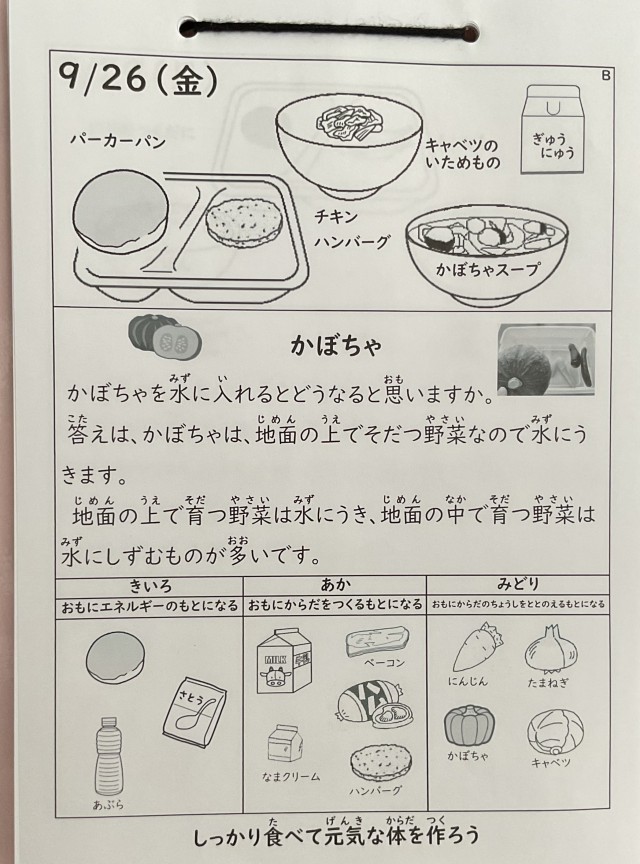 9/26(金)
B
パーカーパン
キャベツの
いためもの
ぎゅう
にゅう
チキン
ハンバーグ
かぼちゃスープ
かぼちゃ
かぼちゃを水に入れるとどうなると思いますか。
答えは、かぼちゃは、地面の上でそだつ野菜なので水にう
きます。
地面の上で育つ野菜は水にうき、地面の中で育つ野菜は
水にしずむものが多いです。
きいろ
あか
みどり
おもにエネルギーのもとになる
おもにからだをつくるもとになる
おもにからだのちょうしをととのえるもとになる
さとう
あぶら
MILK
ベーコン
なまクリーム
ハンバーグ
にんじん
たまねぎ
かぼちゃ
キャベツ
しっかり食べて元気な体を作ろう